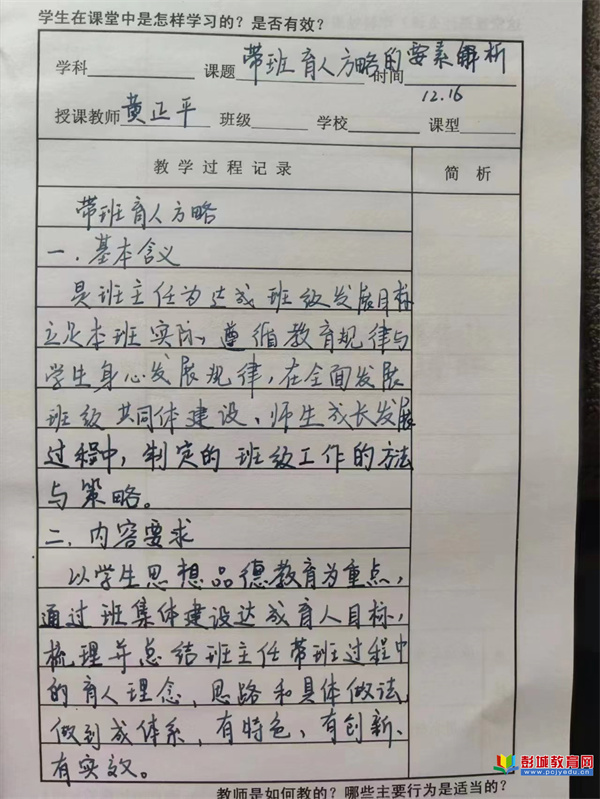 学生在课堂中是怎样学习的？是否有效？
学科 课题 带班育人方略的要素解析 时间 12.16
授课教师 黄正平 班级 学校 课型
教学过程记录 简析
带班育人方略
一.基本含义
是班主任为达成班级发展目标
立足本班实际，遵循教育规律与
学生身心发展规律，在全面发展
班级共同体建设、师生成长发展
过程中，制定的班级工作的方法
与策略。
二.内容要求
以学生思想品德教育为重点，
通过班集体建设达成育人目标，
梳理并总结班主任带班过程中
的育人理念、思路和具体做法，
做到成体系，有特色，有创新、
有实效。
彭城教育网
www.pcjyw.com
教师是如何教的？哪些主要行为是适当的？